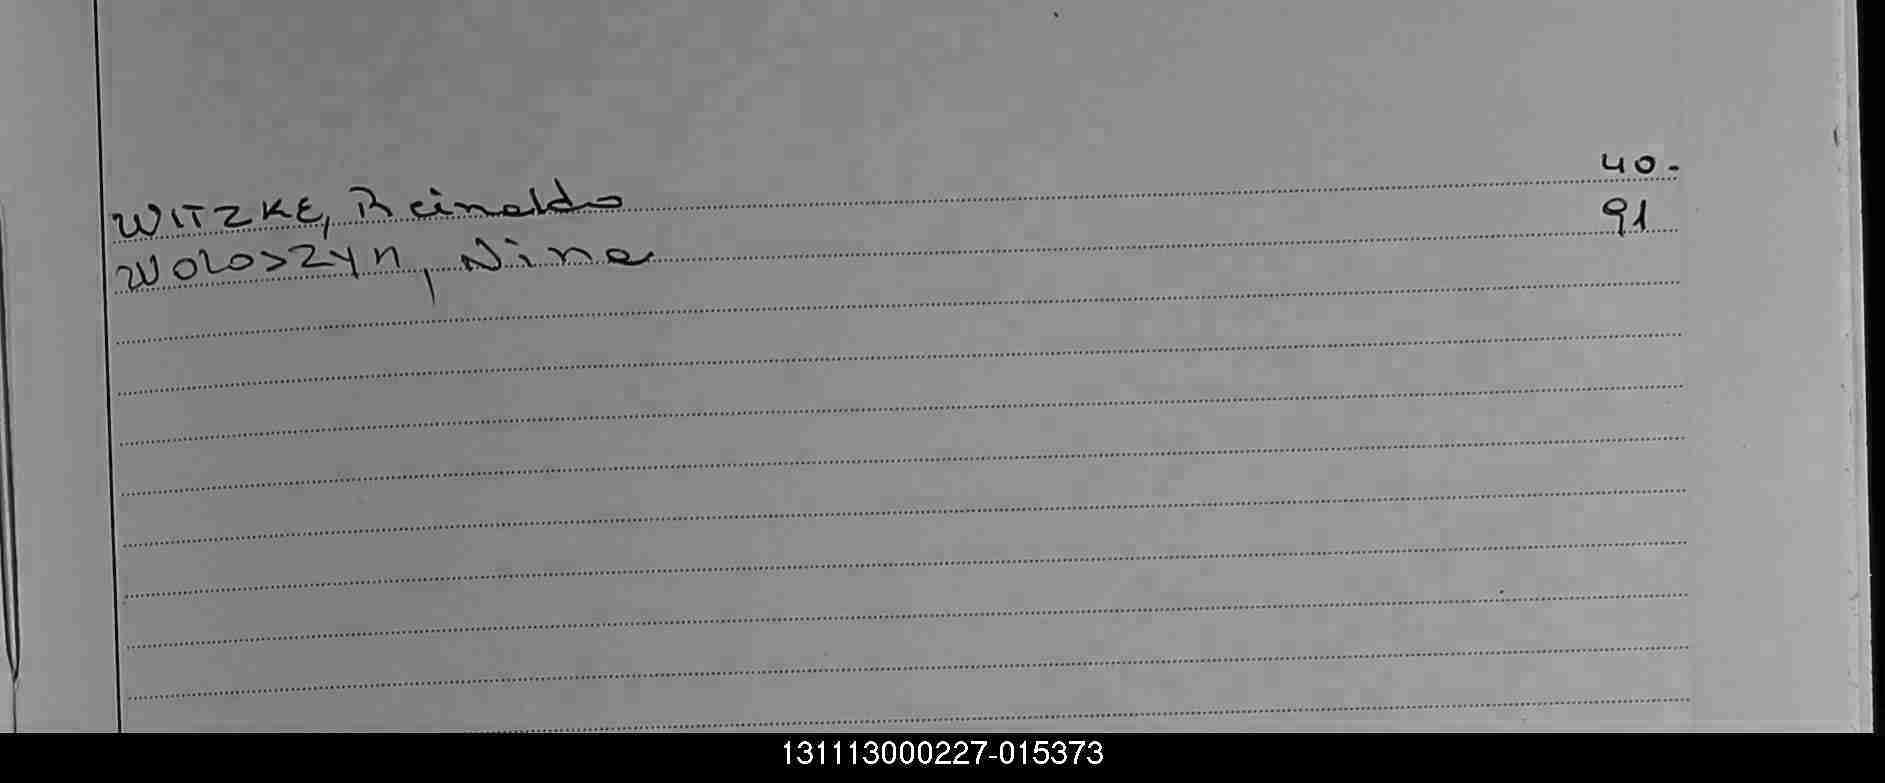 WITZKE, Reinaldo 40.
WOLOSZYN, Nina 91
131113000227-015373